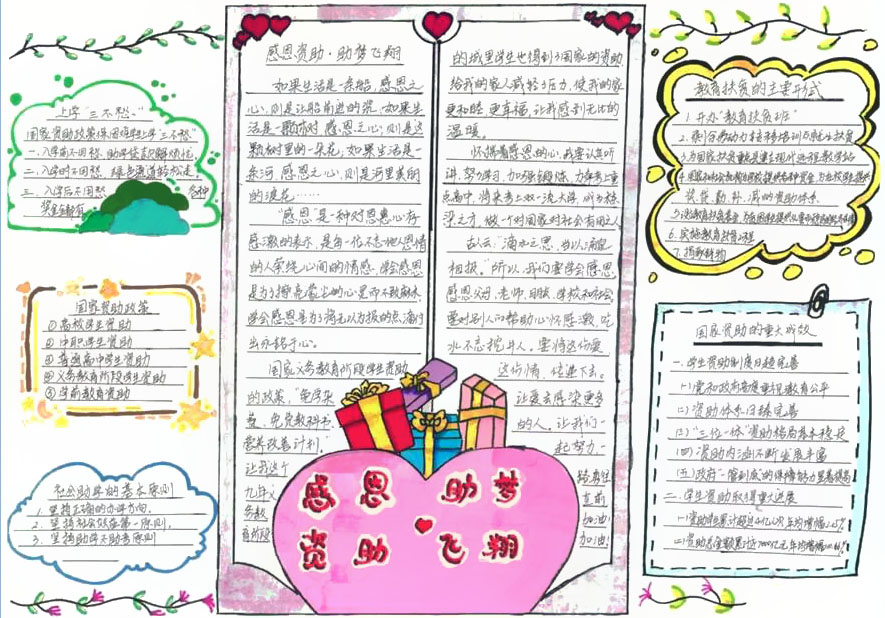 上学"三不愁"
国家资助政策保困难学生上学"三不愁"
一、入学前不用愁
二、入学时不用愁 绿色通道
三、入学后不用愁 各种
奖金都有
国家资助政策
①高校学生资助
②中职学生资助
③普通高中学生资助
④义务教育阶段学生资助
⑤学前教育资助
社会助学的基本原则
1. 坚持正确的办学方向,
2. 坚持社会效益第一原则,
3. 坚持助学不助考原则
感恩资助·助梦飞翔
如果生活是一条船,感恩之
心,则是让船前进的桨,如果生
活是一颗 树,感恩之心,则是这
颗树里的一朵花,如果生活是一
条河,感恩之心,则是河里美丽
的浪花……
"感恩"是一种对恩惠心存
感激的表示,是每一位不忘他人恩情
的人萦绕心间的情感。学会感恩
是为了擦亮蒙尘的心灵而不致麻木
学会感恩是为了将无以为报的点滴付
出永铭于心。
国家义务教育阶段学生资助
的政策,"免学杂
费、免费教科书、
营养改善计划。"
让我这个
九年义
务教
育阶段
的城里学生也得到了国家的资助
给我的家人减轻了压力,使我的家
更和睦、更幸福,让我感到无比的
温暖。
怀揣着感恩的心,我要认真听
讲,努力学习,加强锻炼,力争考上重
点高中,将来考上双一流大学,成为栋
梁之才,做一个对国家对社会有用之人
古人云:"滴水之恩,当以涌泉
相报。"所以,我们要学会感恩,
感恩父母、老师、朋友、学校和社会,
要对别人的帮助心怀感激,吃
水不忘挖井人。要将这份爱
这份情,传递下去。
让爱去感染更多
的人,让我们一
起努力,一
路勇往
直前
加油!
加油!
感恩 助梦
资助 飞翔
教育扶贫的主要形式
1. 开办"教育扶贫班"
2. 组合劳动力转移培训与就业扶贫
3. 为国家扶贫重点县建立现代远程教学站
奖、贷、勤、补、减的资助体系
6. 实施教育对口工程
7. 捐款赠物
国家资助的重大成效
一. 学生资助制度日趋完善
(一)党和政府高度重视教育公平
(二)资助体系日臻完善
(三)"三位一体"资助格局基本稳定
(四)资助内涵不断发展丰富
(五)政府"一管到底"的保障能力显著提高
二. 学生资助取得重大进展